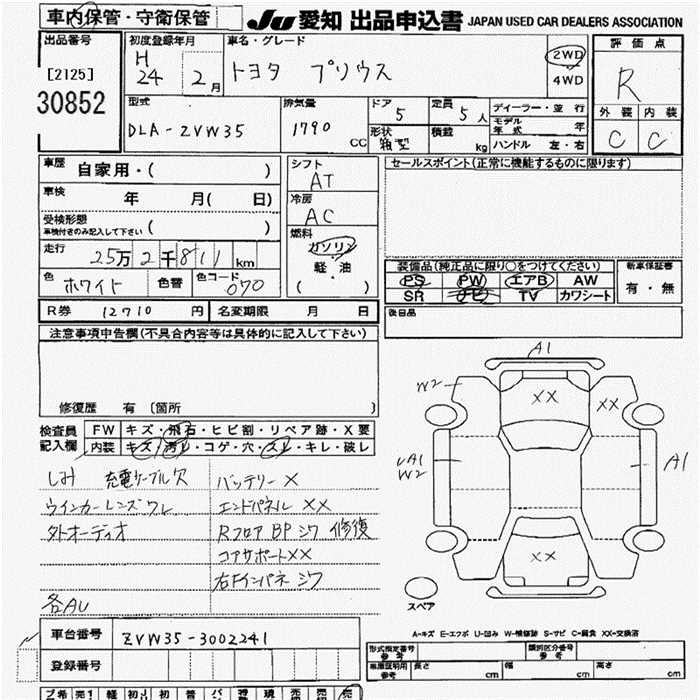 車内保管・守衛保管
JU 愛知 出品申込書 JAPAN USED CAR DEALERS ASSOCIATION
出品番号 初度登録年月 車名・グレード 評価点
[2125] H 24年 2月 トヨタ プリウス 2WD 4WD R
30852
型式 排気量 ドア 定員 ディーラー・並行 外装 内装
DLA-ZVW35 1790 CC 5 5人 モデル年式 年 C C
形状 箱型 積載 kg ハンドル 左・右
車歴 自家用・( ) シフト AT セールスポイント(正常に機能するものに限ります)
車検 年 月( 日) 冷房 AC
受検形態 車検付きのみ記入して下さい ( ) 燃料 ガソリン
走行 25万2千811km 軽・油
色 ホワイト 色替 色コード 070 ( )
装備品(純正品に限り○をつけてください) 新車保証書
PS PW エアB AW 有・無
SR ナビ TV カワシート
R券 12710円 名変期限 月 日 後日品
注意事項申告欄(不具合内容等は具体的に記入して下さい)
修復歴 有 〔箇所 〕
検査員記入欄 FW キズ・飛石・ヒビ割・リペア跡・X要
内装 キズ・汚れ・コゲ・穴・スレ・キレ・破レ
しみ 充電ケーブル欠 バッテリーX
ウインカーレンズワレ エンドパネルXX
外オーディオ Rフロア BP シワ 修復
コアサポートXX
右Fインパネ シワ
各AU
A1
W2 XX XX
UA1 W2 A1
XX
スペア
A-キズ E-エクボ U-凹み W-補修跡 S-サビ C-腐食 XX-交換済
車台番号 ZVW35-3002241
登録番号
形式指定番号 参考 類別区分番号 参考
車庫証明用 参考 長さ cm 幅 cm 高さ cm